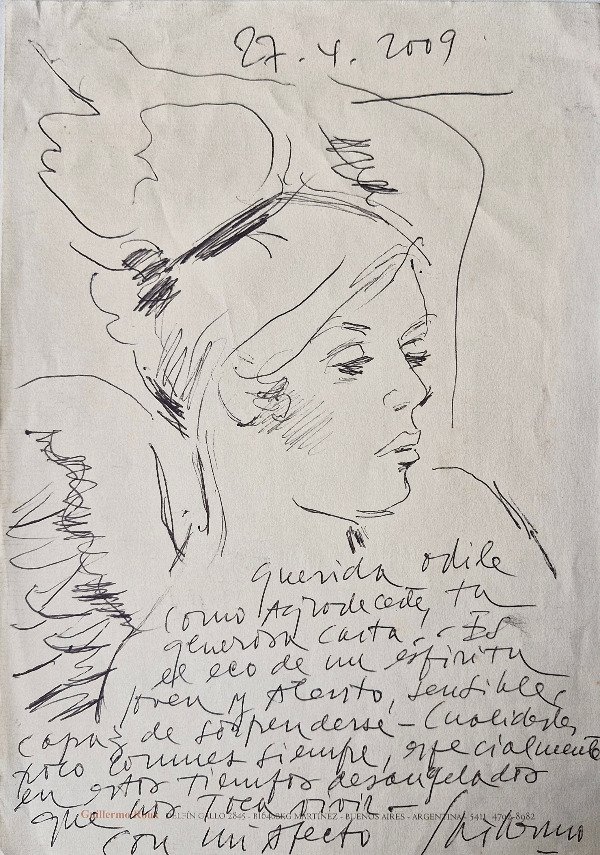 27.4.2009
Querida Odile
como Agradecerte, tu
generosa carta. Es
el eco de un espíritu
joven y Atento, sensible,
capaz de sorprenderse - Cualidades
poco comunes siempre, especialmente
en estos tiempos desangelados
que nos toca vivir -
Guillermo Roux DELFÍN GALLO 2845 - B1640BKG MARTÍNEZ - BUENOS AIRES - ARGENTINA 5411
con mi afecto Guillermo